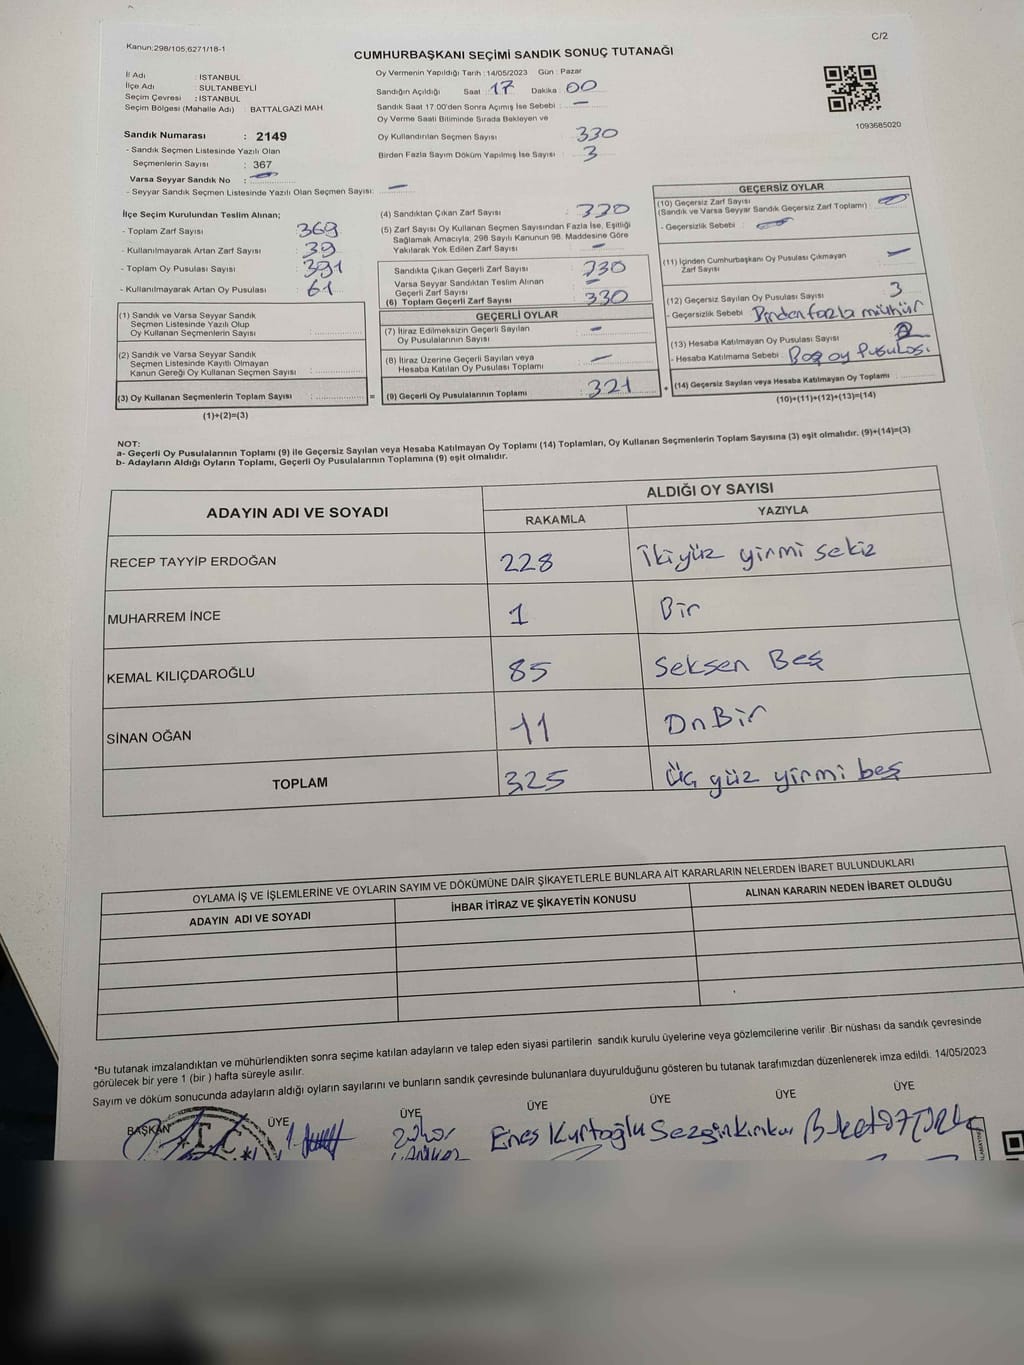 Kanun:298/105,6271/18-1
C/2
CUMHURBAŞKANI SEÇİMİ SANDIK SONUÇ TUTANAĞI
İl Adı : İSTANBUL
İlçe Adı : SULTANBEYLİ
Seçim Çevresi : İSTANBUL
Seçim Bölgesi (Mahalle Adı) : BATTALGAZİ MAH
Oy Vermenin Yapıldığı Tarih : 14/05/2023 Gün : Pazar
Sandığın Açıldığı Saat : 17 Dakika : 00
Sandık Saat 17.00'den Sonra Açımış İse Sebebi : —
Oy Verme Saati Bitiminde Sırada Bekleyen ve
Oy Kullandırılan Seçmen Sayısı : 330
Birden Fazla Sayım Döküm Yapılmış İse Sayısı : 3
1093685020
Sandık Numarası : 2149
- Sandık Seçmen Listesinde Yazılı Olan
Seçmenlerin Sayısı : 367
Varsa Seyyar Sandık No : —
- Seyyar Sandık Seçmen Listesinde Yazılı Olan Seçmen Sayısı: —
İlçe Seçim Kurulundan Teslim Alınan;
- Toplam Zarf Sayısı : 369
- Kullanılmayarak Artan Zarf Sayısı : 39
- Toplam Oy Pusulası Sayısı : 391
- Kullanılmayarak Artan Oy Pusulası : 61
(1) Sandık ve Varsa Seyyar Sandık
Seçmen Listesinde Yazılı Olup
Oy Kullanan Seçmenlerin Sayısı :
(2) Sandık ve Varsa Seyyar Sandık
Seçmen Listesinde Kayitli Olmayan
Kanun Gereği Oy Kullanan Seçmen Sayısı :
(3) Oy Kullanan Seçmenlerin Toplam Sayısı : =
(1)+(2)=(3)
(4) Sandıktan Çıkan Zarf Sayısı : 330
(5) Zarf Sayısı Oy Kullanan Seçmen Sayısından Fazla İse, Eşitliği
Sağlamak Amacıyla, 298 Sayılı Kanunun 98. Maddesine Göre
Yakılarak Yok Edilen Zarf Sayısı : —
Sandıkta Çıkan Geçerli Zarf Sayısı : 330
Varsa Seyyar Sandıktan Teslim Alınan
Geçerli Zarf Sayısı : —
(6) Toplam Geçerli Zarf Sayısı : 330
GEÇERLİ OYLAR
(7) İtiraz Edilmeksizin Geçerli Sayılan
Oy Pusulasının Sayısı : —
(8) İtiraz Üzerine Geçerli Sayılan veya
Hesaba Katılan Oy Pusulası Toplamı : —
(9) Geçerli Oy Pusulalarının Toplamı : 321 +
GEÇERSİZ OYLAR
(10) Geçersiz Zarf Sayısı
(Sandık ve Varsa Seyyar Sandık Geçersiz Zarf Toplamı) : —
- Geçersizlik Sebebi : —
(11) İçinden Cumhurbaşkanı Oy Pusulası Çıkmayan
Zarf Sayısı : —
(12) Geçersiz Sayılan Oy Pusulası Sayısı : 3
- Geçersizlik Sebebi : Birden fazla mühür
(13) Hesaba Katılmayan Oy Pusulası Sayısı :
- Hesaba Katılmama Sebebi : Boş oy Pusulası
(14) Geçersiz Sayılan veya Hesaba Katılmayan Oy Toplamı :
(10)+(11)+(12)+(13)=(14)
NOT:
a- Geçerli Oy Pusulalarının Toplamı (9) ile Geçersiz Sayılan veya Hesaba Katılmayan Oy Toplamı (14) Toplamları, Oy Kullanan Seçmenlerin Toplam Sayısına (3) eşit olmalıdır. (9)+(14)=(3)
b- Adayların Aldığı Oyların Toplamı, Geçerli Oy Pusulalarının Toplamına (9) eşit olmalıdır.
ADAYIN ADI VE SOYADI ALDIĞI OY SAYISI
RAKAMLA YAZIYLA
RECEP TAYYİP ERDOĞAN 228 İkiyüz yirmi sekiz
MUHARREM İNCE 1 Bir
KEMAL KILIÇDAROĞLU 85 Seksen Beş
SİNAN OĞAN 11 OnBir
TOPLAM 325 Üç yüz yirmi beş
OYLAMA İŞ VE İŞLEMLERİNE VE OYLARIN SAYIM VE DÖKÜMÜNE DAİR ŞİKAYETLERLE BUNLARA AİT KARARLARIN NELERDEN İBARET BULUNDUKLARI
ADAYIN ADI VE SOYADI İHBAR İTİRAZ VE ŞİKAYETİN KONUSU ALINAN KARARIN NEDEN İBARET OLDUĞU
*Bu tutanak imzalandıktan ve mühürlendikten sonra seçime katılan adayların ve talep eden siyasi partilerin sandık kurulu üyelerine veya gözlemcilerine verilir .Bir nüshası da sandık çevresinde
görülecek bir yere 1 (bir ) hafta süreyle asılır.
Sayım ve döküm sonucunda adayların aldığı oyların sayılarını ve bunların sandık çevresinde bulunanlara duyurulduğunu gösteren bu tutanak tarafımızdan düzenlenerek imza edildi. 14/05/2023
BAŞKAN ÜYE ÜYE ÜYE ÜYE ÜYE ÜYE
Enes Kurtoğlu